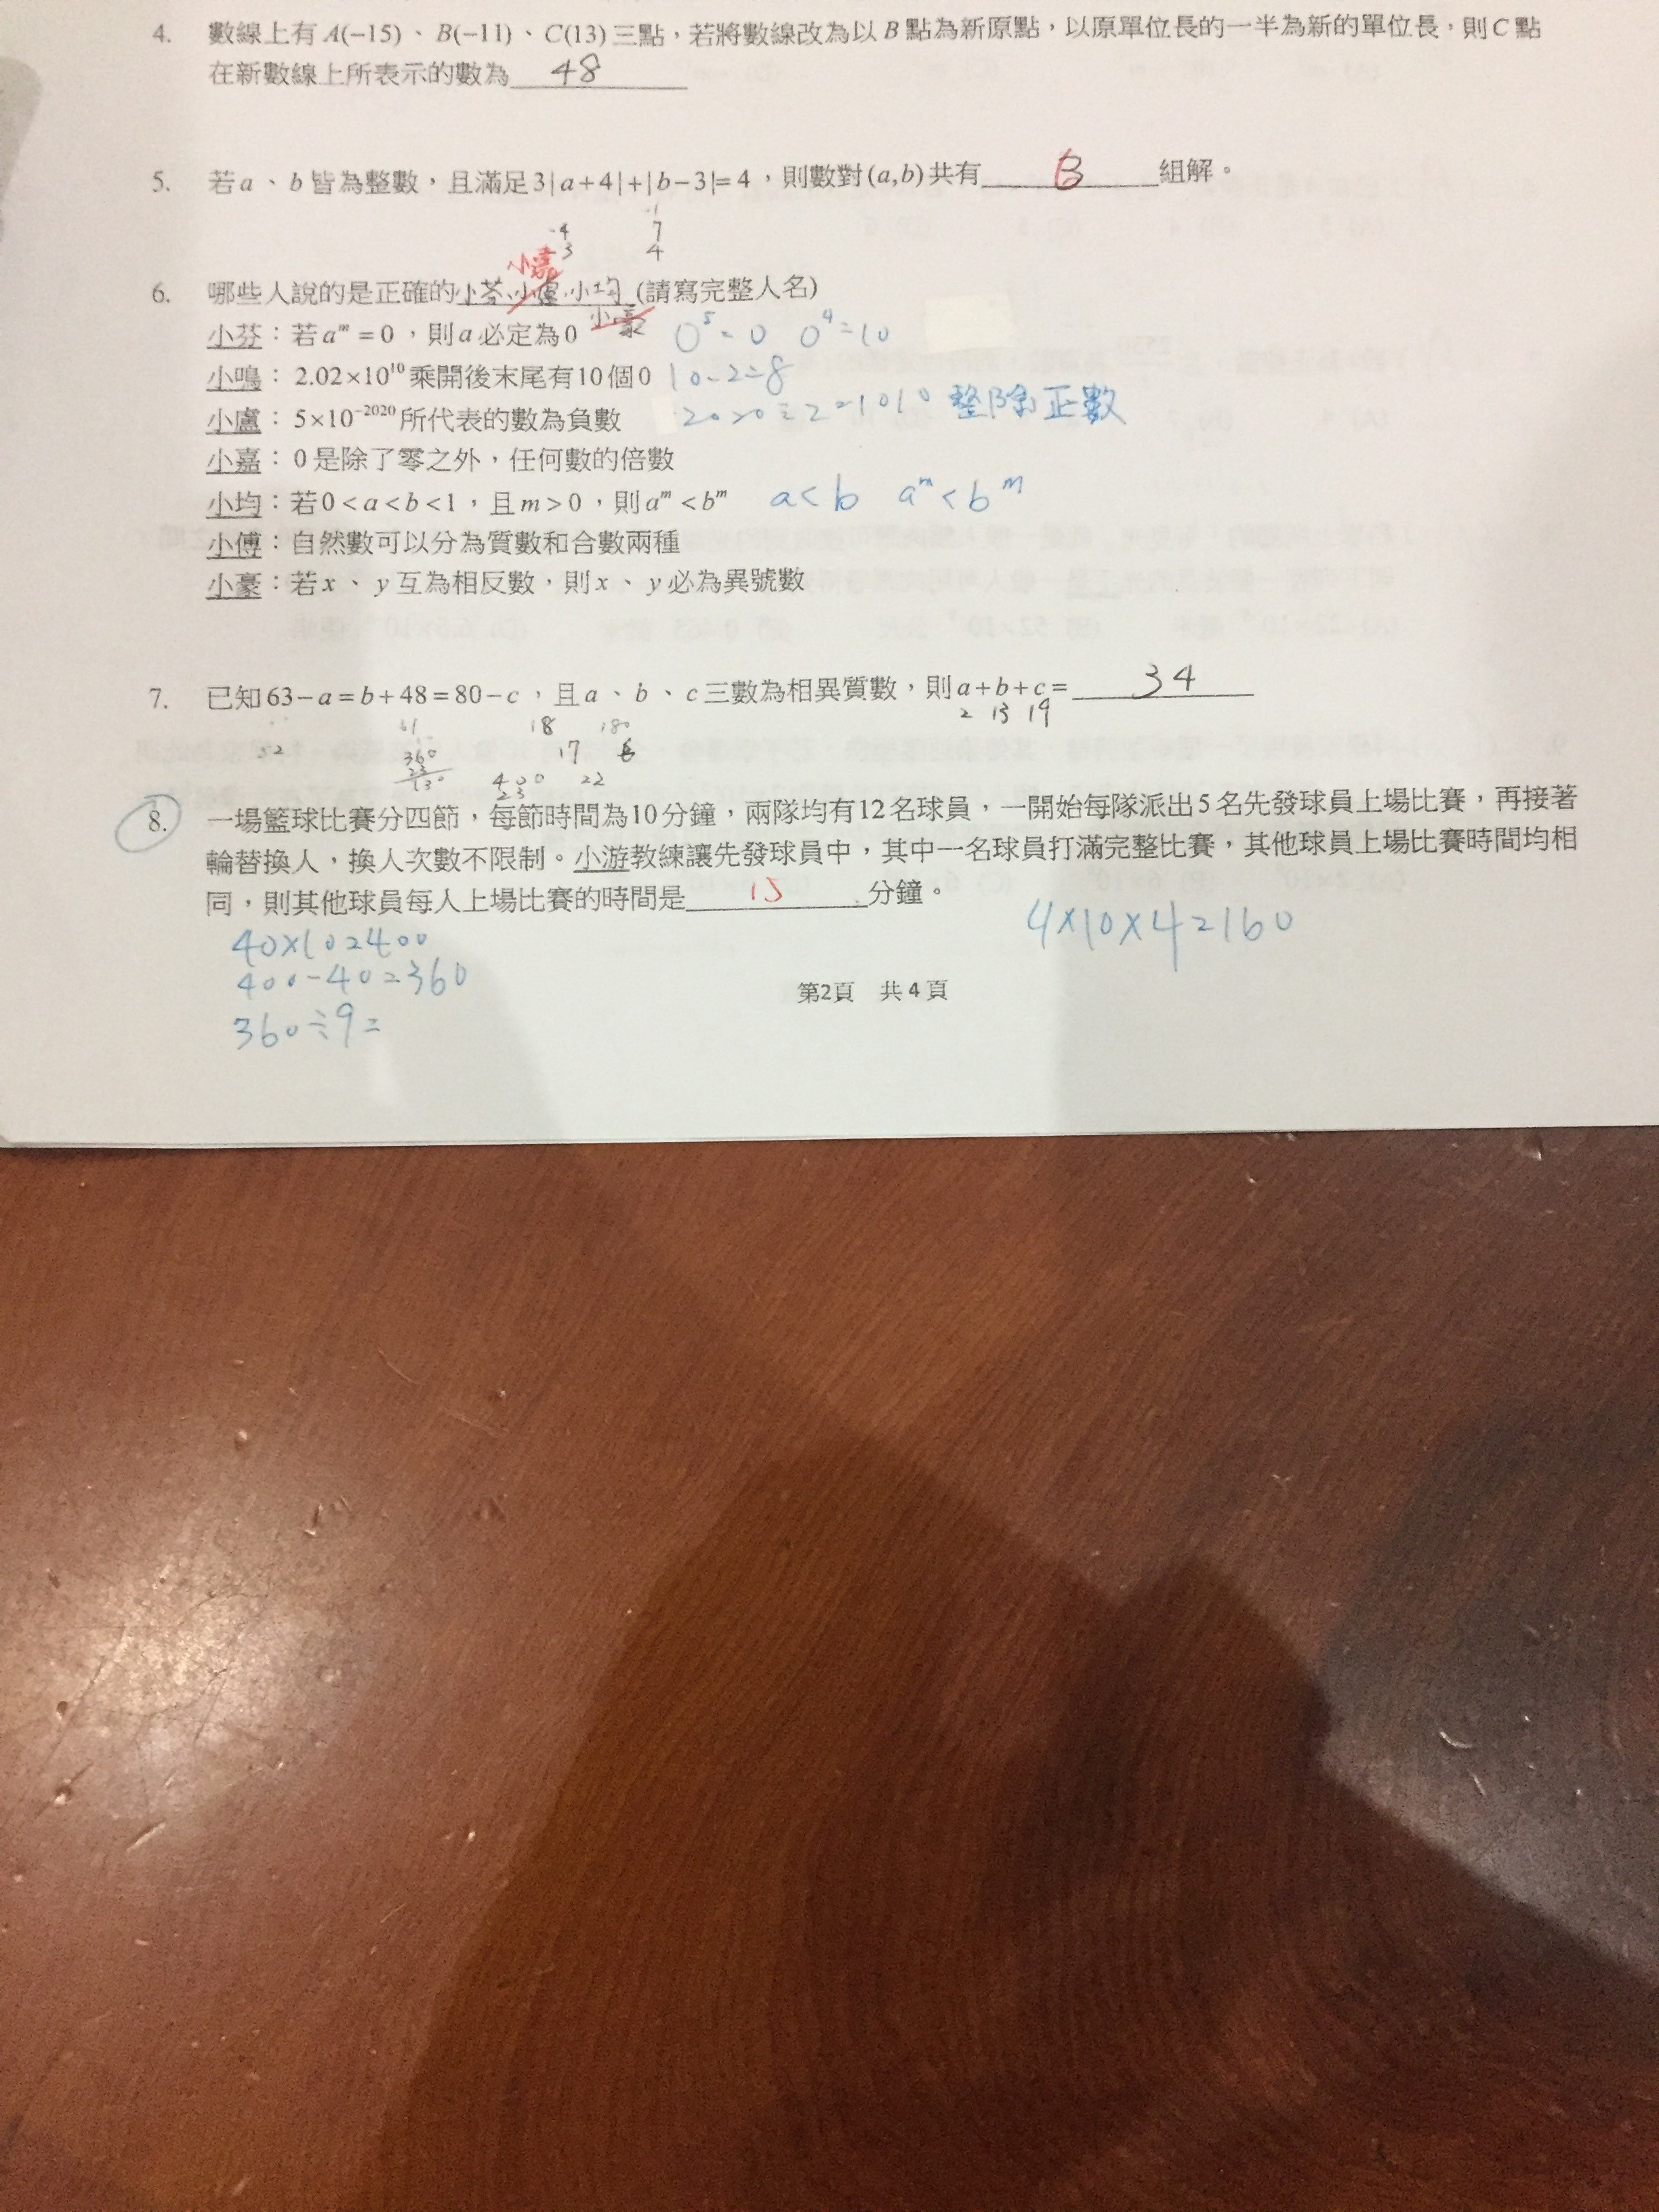 4. 數線上有A(−15)、B(−11)、C(13)三點，若將數線改為以B點為新原點，以原單位長的一半為新的單位長，則C點
在新數線上所表示的數為 48
5. 若a、b皆為整數，且滿足3|a+4|+|b−3|=4，則數對(a,b)共有 組解。
-4 7
3 4
小嘉
6. 哪些人說的是正確的小芬、小盧、小均(請寫完整人名)
小豪
小芬：若aᵐ=0，則a必定為0 0⁵=0 0⁴=10
小鳴：2.02×10¹⁰乘開後末尾有10個0 10-2=8
小盧：5×10⁻²⁰²⁰所代表的數為負數 2020÷2=1010 整除正數
小嘉：0是除了零之外，任何數的倍數
小均：若0<a<b<1，且m>0，則aᵐ<bᵐ a<b aᵐ<bᵐ
小傅：自然數可以分為質數和合數兩種
小豪：若x、y互為相反數，則x、y必為異號數
7. 已知63−a=b+48=80−c，且a、b、c三數為相異質數，則a+b+c= 34
2 13 19
52 61 18 180
360 17
400 22
8. 一場籃球比賽分四節，每節時間為10分鐘，兩隊均有12名球員，一開始每隊派出5名先發球員上場比賽，再接著
輪替換人，換人次數不限制。小游教練讓先發球員中，其中一名球員打滿完整比賽，其他球員上場比賽時間均相
同，則其他球員每人上場比賽的時間是 15 分鐘。
40×10=400 4×10×4=160
400-40=360
360÷9=
第2頁 共4頁